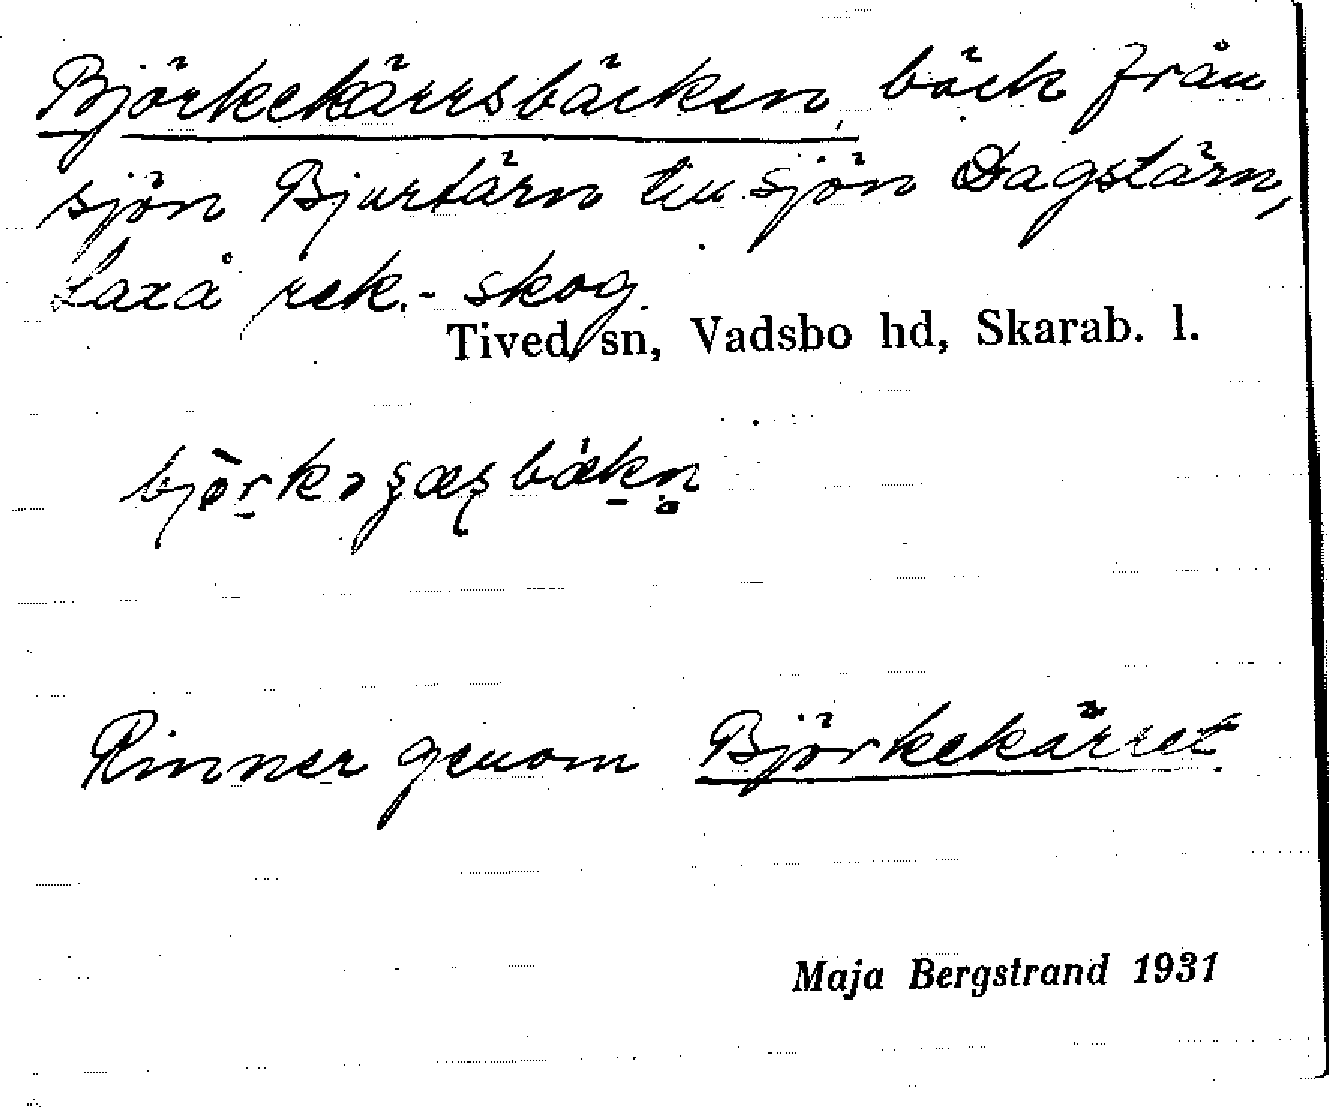 Björkekärrsbäcken, bäck från
sjön Bjurtärn till sjön Dagstärn,
Laxå rek.-skog.
Tived sn, Vadsbo hd, Skarab. l.
Rinner genom Björkekärret.
Maja Bergstrand 1931